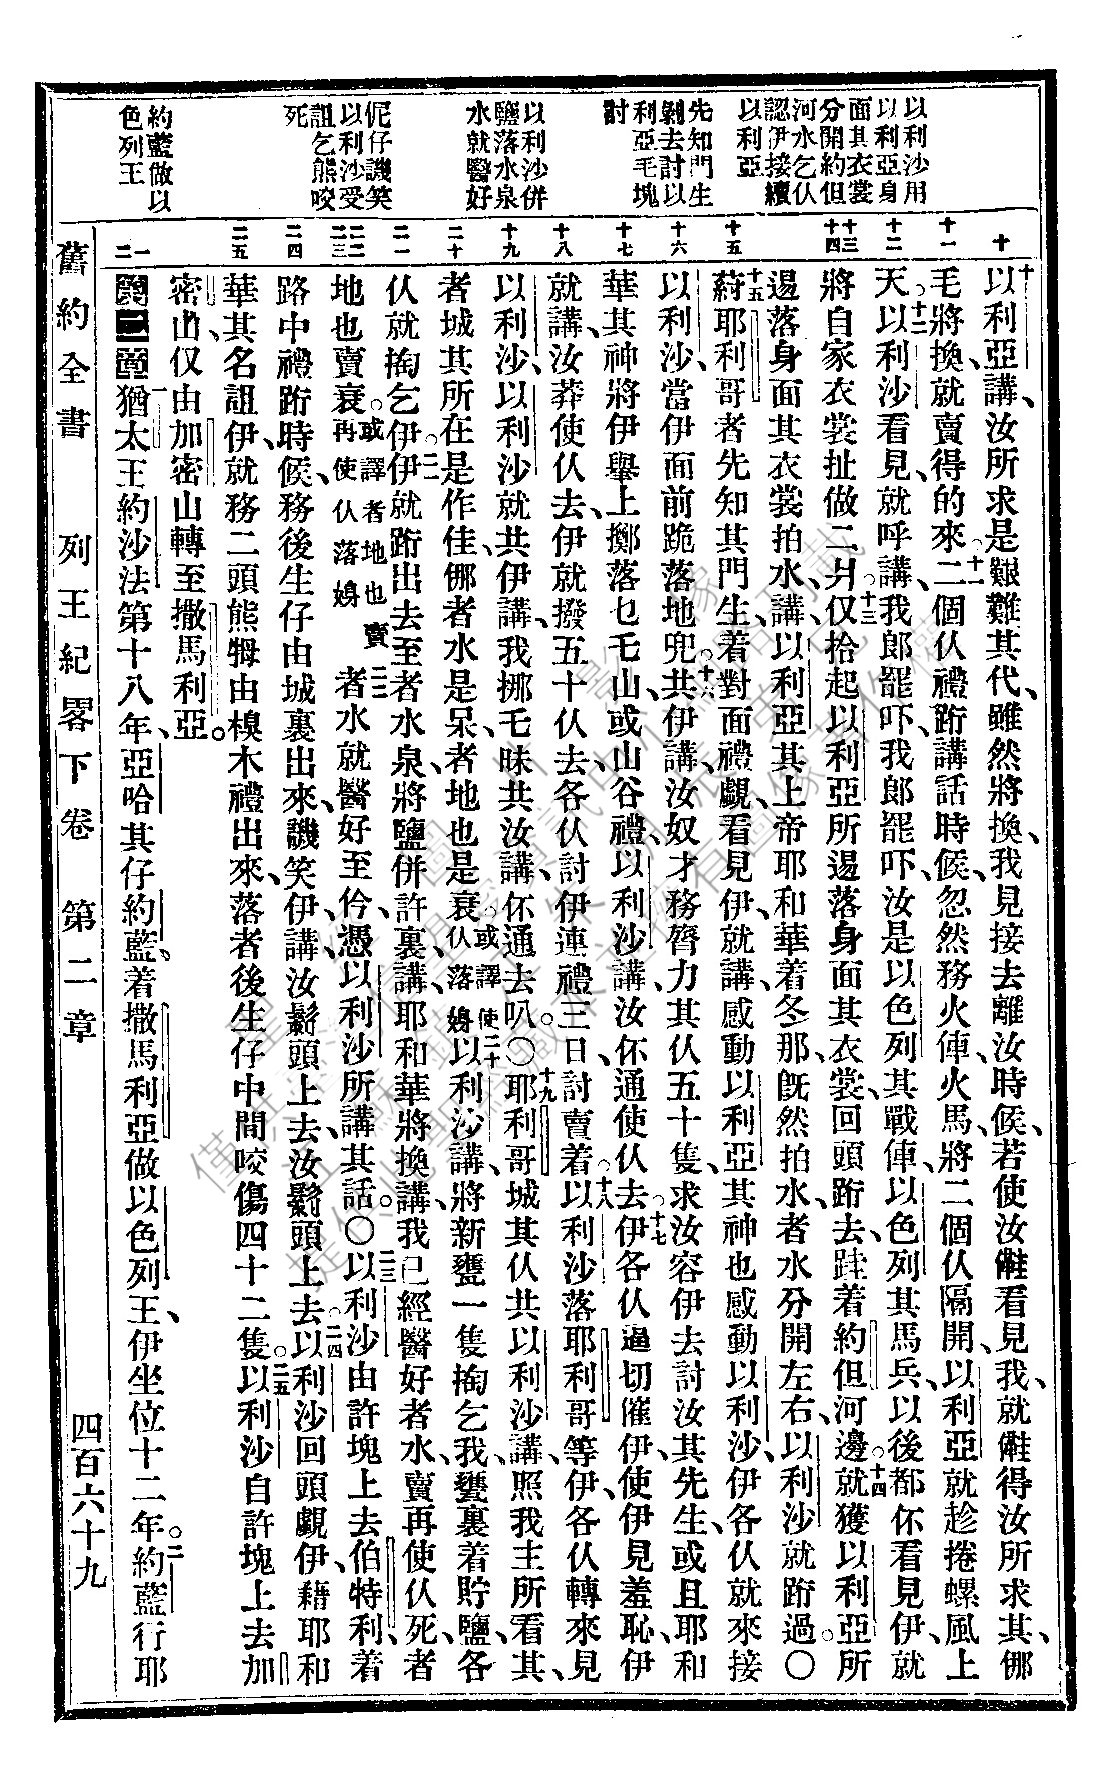 以利沙用
以利亞身
面其衣裳
分開約但
河水乞仈
認伊接續
以利亞
先知門生
剝去討以
利亞毛塊
討
以利沙併
鹽落水泉
水就醫好
伲仔譏笑
以利沙受
詛乞熊咬
死
約藍做以
色列王
十
十一
十二
十三
十四
十五
十六
十七
十八
十九
二十
二一
二二
二三
二四
二五
一
二
十以利亞講、汝所求是艱難其代、雖然將換、我見接去離汝時候、若使汝看見我、就得汝所求其、㑚
毛將換、就賣得的來。十一二個仈禮跲講話時候、忽然務火俥火馬、將二個仈隔開、以利亞就趁捲螺風上
天。十二以利沙看見、就呼講、我郎罷吓、我郎罷吓、汝是以色列其戰俥、以色列其馬兵、以後都伓看見伊、就
將自家衣裳扯做二爿。十三仅拾起以利亞所逿落身面其衣裳、回頭跲去、跬着約但河邊、十四就獲以利亞所
逿落身面其衣裳拍水、講、以利亞其上帝耶和華着冬那、旣然拍水、者水分開左右、以利沙就跲過。〇
十五耶利哥者先知其門生、着對面禮覷、看見伊就講、感動以利亞其神也感動以利沙、伊各仈就來接
以利沙、當伊面前跪落地兜。十六共伊講、汝奴才務膂力其仈五十隻、求汝容伊去討汝其先生、或且耶和
華其神將伊舉上、擲落乜乇山、或山谷禮、以利沙講、汝伓通使仈去。十七伊各仈逼切催伊、使伊見羞恥、伊
就講、汝莽使仈去、伊就撥五十仈去、各仈討伊連禮三日、討賣着。十八以利沙落耶利哥等伊、各仈轉來見
以利沙、以利沙就共伊講、我挪乇昧共汝講、伓通去叭。〇十九耶利哥城其仈共以利沙講、照我主所看其、
者城其所在是作佳、㑚者水是呆、者地也是衰。或譯使仈落㛂二十以利沙講、將新甕一隻掏乞我、甕裏着貯鹽、各
仈就掏乞伊。二一伊就跲出去至者水泉、將鹽併許裏、講、耶和華將換講、我已經醫好者水、賣再使仈死、者
地也賣衰。或譯者地也賣再使仈落㛂二二者水就醫好至伶、憑以利沙所講其話。〇二三以利沙由許塊上去伯特利、着
路中禮跲時候、務後生仔由城裏出來、譏笑伊、講、汝鬎頭上去、汝鬎頭上去。二四以利沙回頭覷伊、藉耶和
華其名詛伊、就務二頭熊牳由樕木禮出來、落者後生仔中間咬傷四十二隻。二五以利沙自許塊上去加
密山、仅由加密山轉至撒馬利亞。
第三章 一猶太王約沙法第十八年、亞哈其仔約藍、着撒馬利亞做以色列王、伊坐位十二年。二約藍行耶
舊約全書 列王紀畧下卷 第二章 四百六十九
僅供